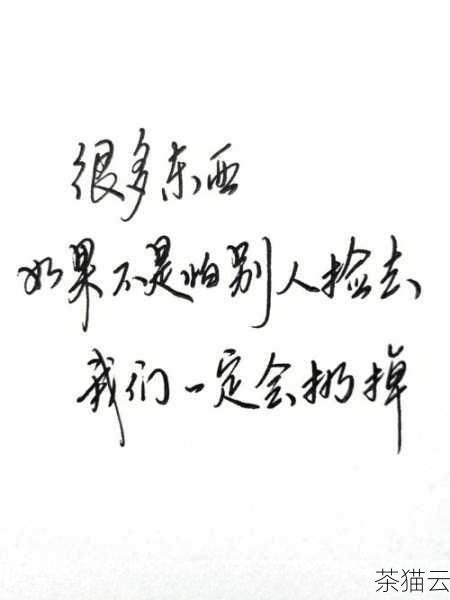 很多东西
如果不是怕别人捡去
我们一定会扔掉
茶猫云